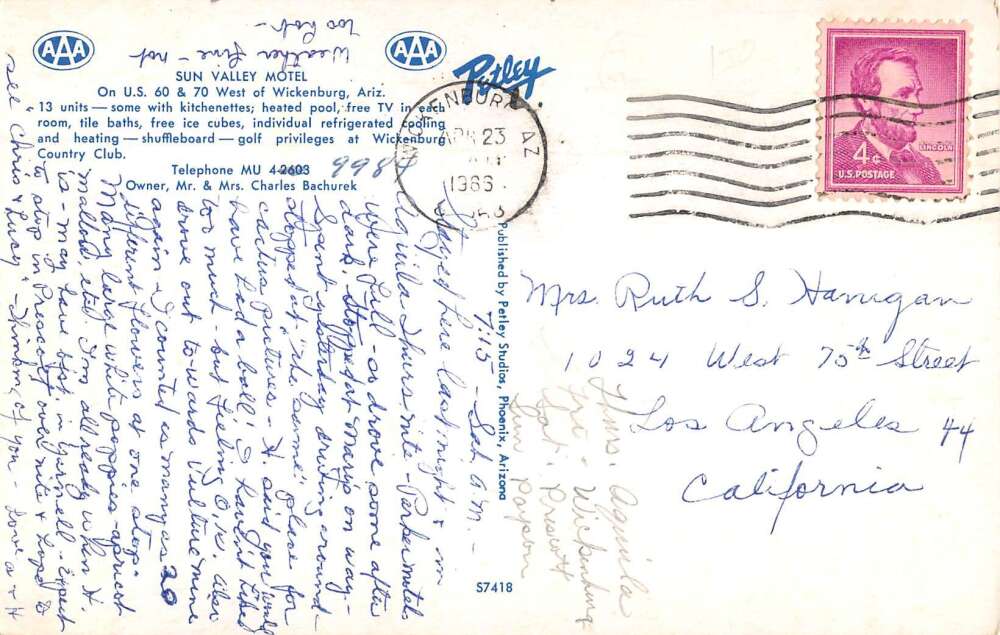 AAA
AAA
SUN VALLEY MOTEL
On U.S. 60 & 70 West of Wickenburg, Ariz.
13 units — some with kitchenettes; heated pool, free TV in each
room, tile baths, free ice cubes, individual refrigerated cooling
and heating — shuffleboard — golf privileges at Wickenburg
Country Club.
Telephone MU 4-2603
9984
Owner, Mr. & Mrs. Charles Bachurek
Petley
WICKENBURG, AZ
APR 23
1966
LINCOLN
4¢
U.S. POSTAGE
Published by Petley Studios, Phoenix, Arizona
S7418
7:15 - Sat. a.m. -
Stayed here last night & in
Aquila Thurs nite - Parker motels
were full - so drove some after
dark. Stopped at Marip's on way -
Spent yesterday driving around
stopped at "the same" place for
cactus pictures - H. said you would
have had a ball! I haven't hiked
too much - but feeling O.K. Also
drove out towards Vulture mine
again & I counted as many as 20
different flowers at one stop -
Many large white poppies - apricot
mallow, etc. I'm all ready when H.
is - may have bist. in Yarnell - expect
to stop in Prescott over nite & hope to
see Chris & Lucy - Thinking of you - Love a & H
Weather fine - not
too hot -
Mrs. Ruth S. Hanigan
1024 West 75th Street
Los Angeles 44
California
Thurs. Aguila
Fri - Wickenburg
Sat. Prescott
Sun Payson